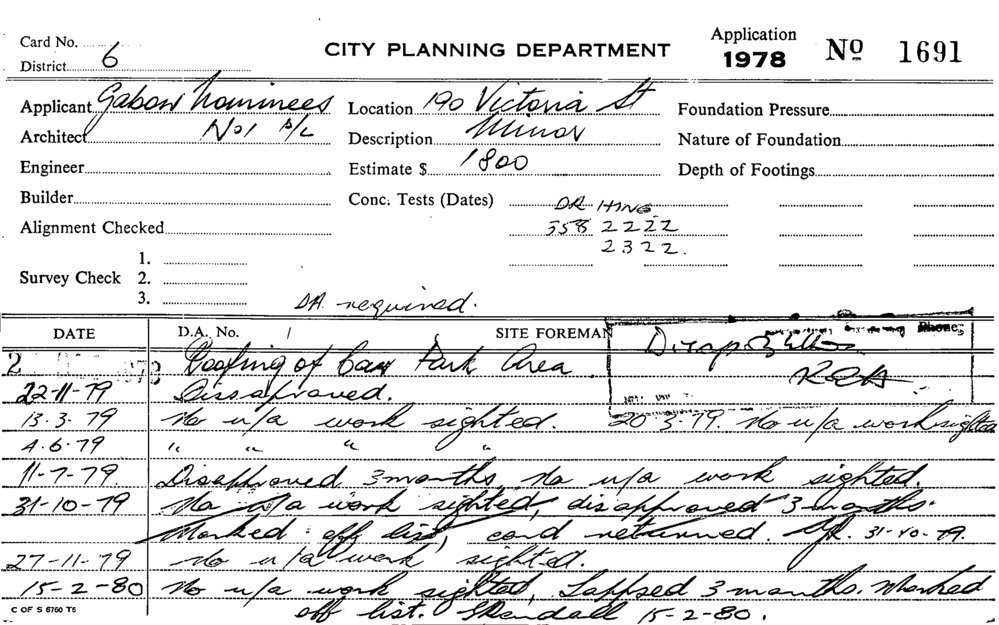 Card No.
District 6
CITY PLANNING DEPARTMENT
Application
1978 No 1691
Applicant Gabow Nominees
Architect No1 P/L
Engineer
Builder
Alignment Checked
Survey Check 1.
2.
3.
Location 190 Victoria St
Description Minor
Estimate $ 1800
Conc. Tests (Dates) DR HING
358 2222
2322.
Foundation Pressure
Nature of Foundation
Depth of Footings
DA required.
DATE D.A. No. / SITE FOREMAN Phone:
2 Roofing of Car Park Area
22-11-79 Dissaproved.
13.3.79 No u/a work sighted. 20.3.79. No u/a work sighted
4.6.79 " " " "
11-7-79. Disapproved 3 months, no u/a work sighted.
31-10-79 No u/a work sighted, disapproved 3 months.
Marked off list, card returned. 31-10-79.
27-11-79 No u/a work sighted.
15-2-80 No u/a work sighted, Lapsed 3 months. Marked
off list. Skendall 15-2-80.
C OF S 6760 T5